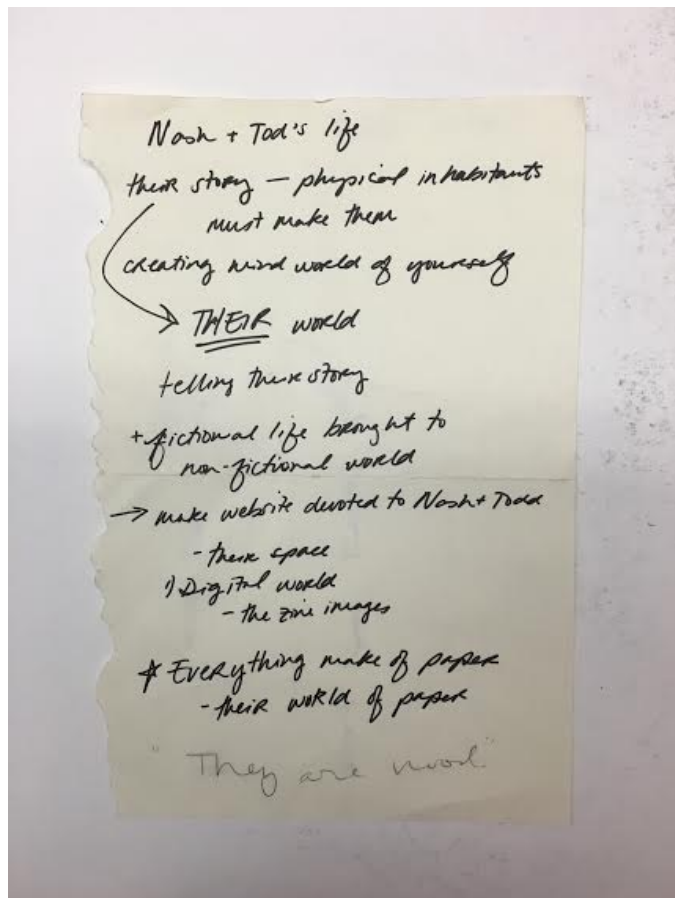 Nash + Tod's life
their story — physical inhabitants
must make them
creating mind world of yourself
→ THEIR world
telling their story
+ fictional life brought to
non-fictional world
→ make website devoted to Nash + Todd
- their space
1) Digital world
- the zine images
* Everything make of paper
- their world of paper
"They are